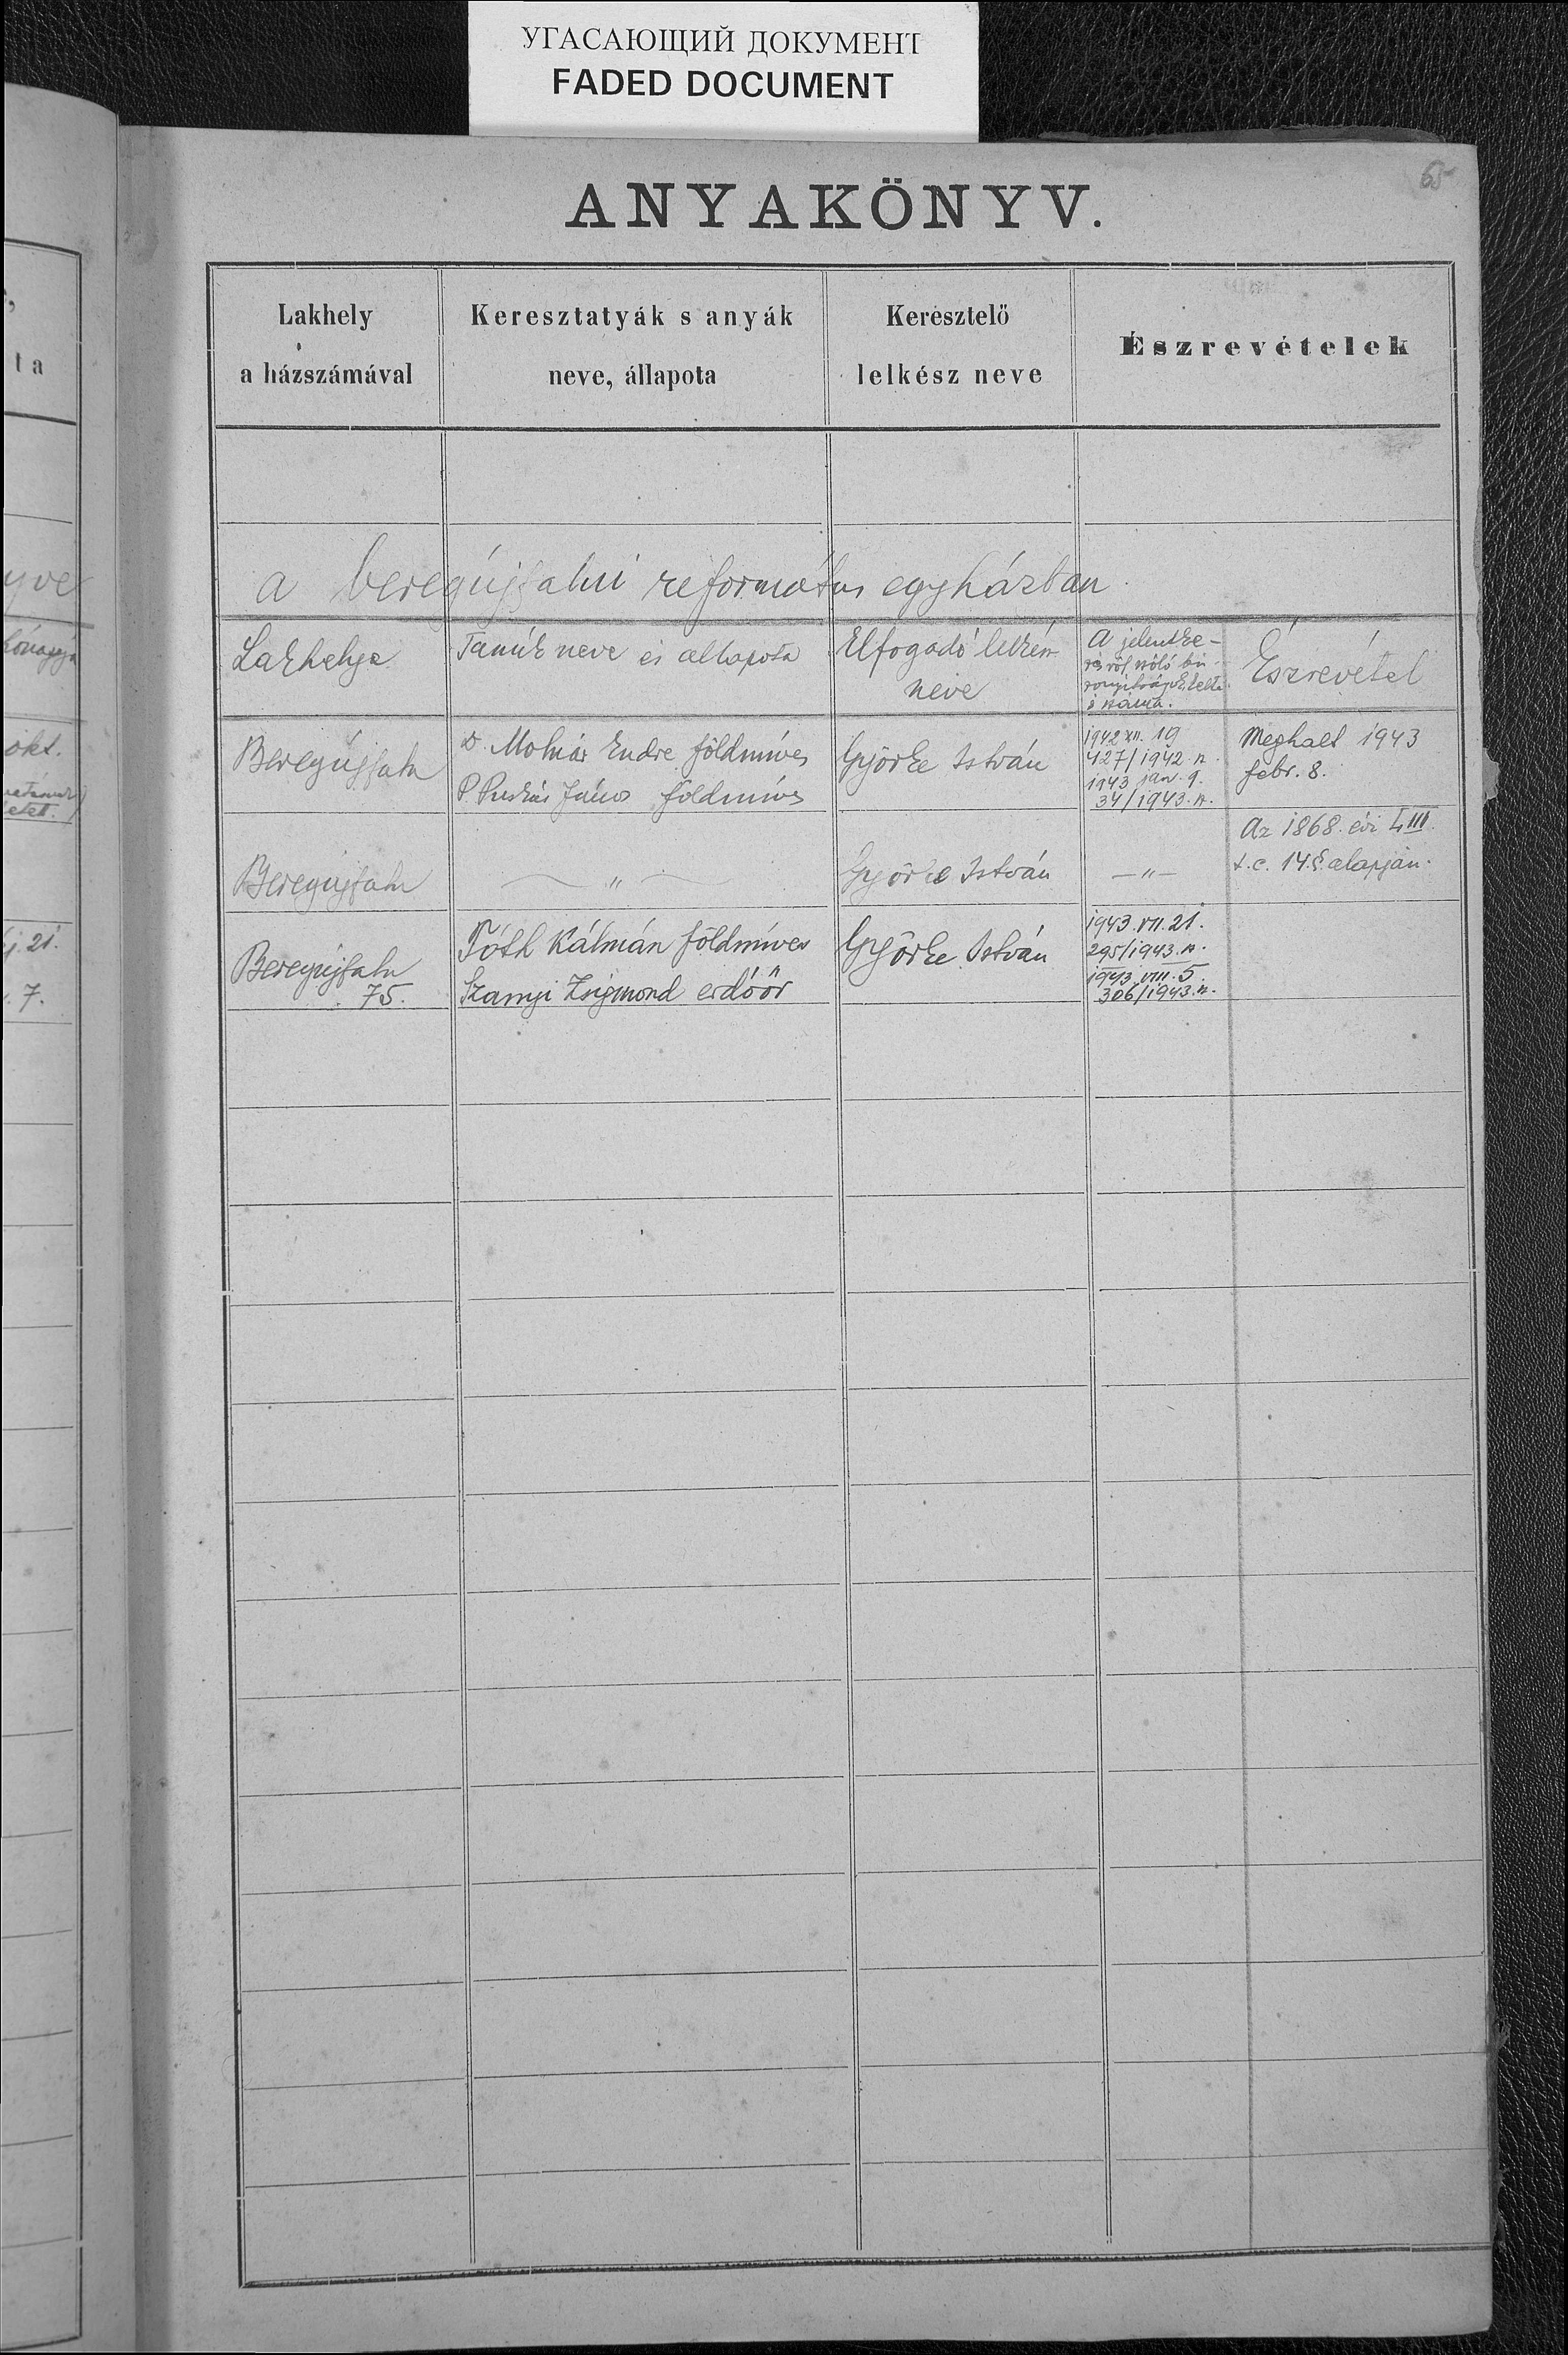 УГАСАЮЩИЙ ДОКУМЕНТ
FADED DOCUMENT
65
ANYAKÖNYV.
Lakhely
a házszámával
Keresztatyák s anyák
neve, állapota
Keresztelő
lelkész neve
Észrevételek
ta
yve
a beregújfalui református egyházban.
Lakhelye
Tanúk neve és állapota
Elfogadó lelkész
neve
A jelentke-
zésről szóló bi-
zonyítványok kelte
s száma.
Észrevétel
okt.
Beregújfalu
D. Molnár Endre földmíves
P. Puskás János földmíves
Györke István
1942 XII. 19
427/1942. sz.
1943 jan. 9.
34/1943. sz.
Meghalt 1943
febr. 8.
Beregújfalu
— " —
Györke István
— " —
Az 1868. évi LIII.
t.c. 14.§ alapján.
21.
7.
Beregújfalu
75.
Tóth Kálmán földmíves
Szanyi Zsigmond erdőőr
Györke István
1943. VII. 21.
295/1943. sz.
1943. VIII. 5.
306/1943. sz.